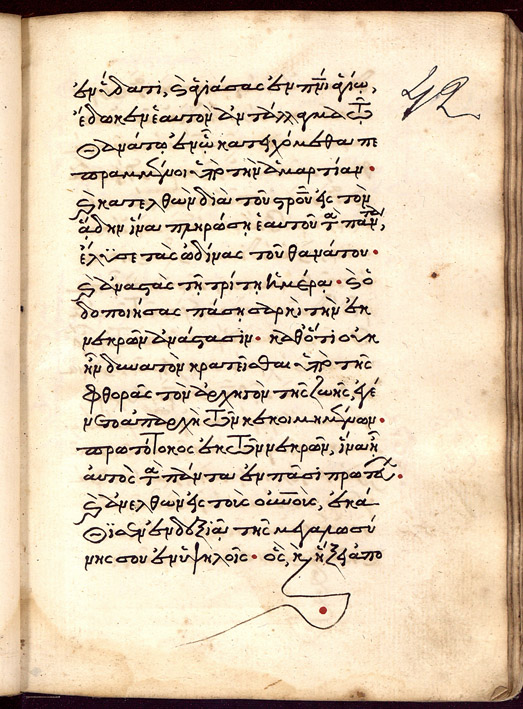 ἐν ὕδατι, καὶ ἁγιάσας ἐν πνι ἁγίῳ,
ἔδωκεν ἑαυτὸν ἀντάλλαγμα τῷ
θανάτῳ, ἐν ᾧ κατειχόμεθα πε
πραμμένοι ὑπὸ τὴν ἁμαρτίαν·
καὶ κατελθὼν διὰ τοῦ στροῦ εἰς τὸν
ᾅδην ἵνα πληρώσῃ ἑαυτοῦ τὰ πάντα,
ἔλϋσε τὰς ὠδίνας τοῦ θανάτου·
καὶ ἀναστὰς τῇ τρίτῃ ἡμέρᾳ· καὶ ὁ
δοποιήσας πάσῃ σαρκὶ τὴν ἐκ
νεκρῶν ἀνάστασιν· καθότι οὐκ
ἦν δυνατὸν κρατεῖσθαι ὑπὸ τῆς
φθορᾶς τὸν ἀρχηγὸν τῆς ζωῆς, ἐγέ
νετο ἀπαρχὴ τῶν κεκοιμημένων·
πρωτότοκος ἐκ τῶν νεκρῶν, ἵνα ᾖ
αὐτὸς τὰ πάντα ἐν πᾶσι πρωτεύων·
καὶ ἀνελθὼν εἰς τοὺς οὐνοὺς, ἐκά
θϊσεν ἐν δεξιᾷ τῆς μεγαλωσύ
νης σου ἐν ὑψηλοῖς· ὃς, καὶ ἥξει ἀπο
42